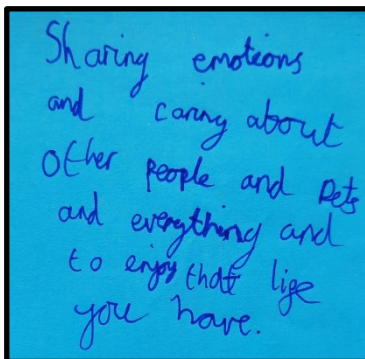 Sharing emotions
and caring about
other people and pets
and everything and
to enjoy that life
you have.